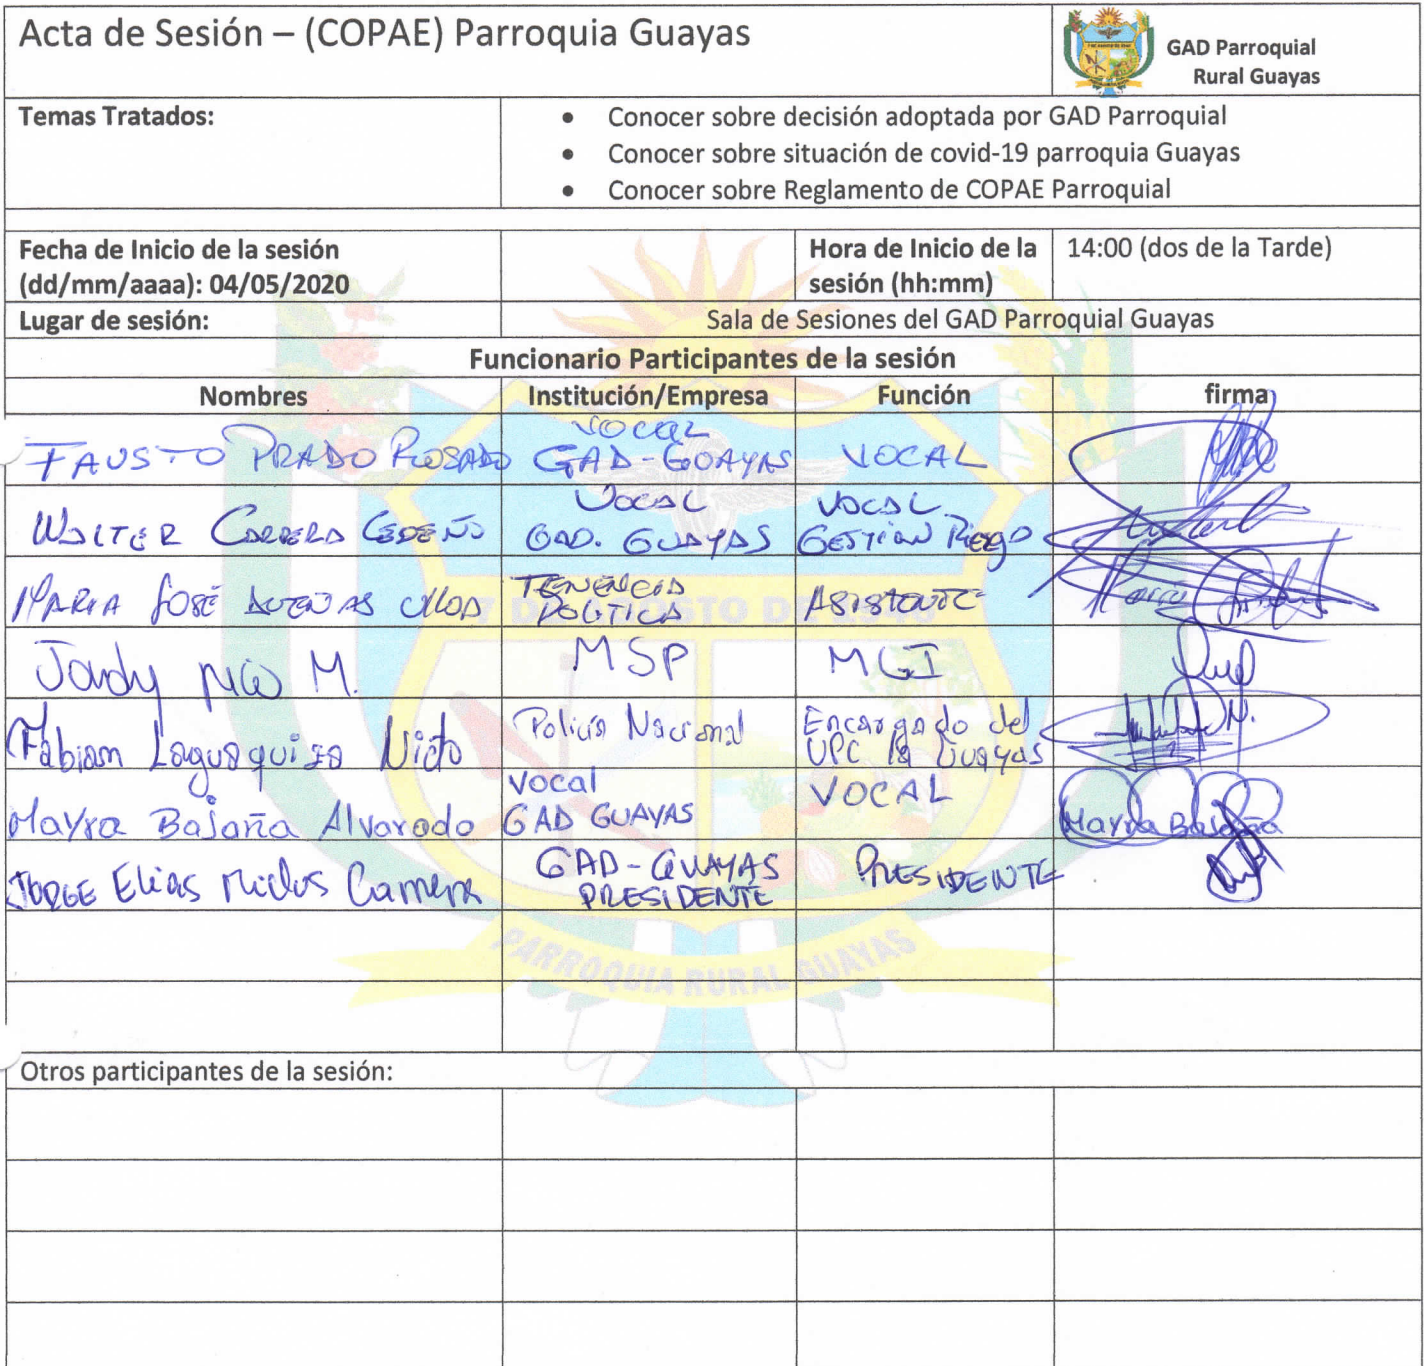 Acta de Sesión – (COPAE) Parroquia Guayas
GAD Parroquial
Rural Guayas
Temas Tratados:
• Conocer sobre decisión adoptada por GAD Parroquial
• Conocer sobre situación de covid-19 parroquia Guayas
• Conocer sobre Reglamento de COPAE Parroquial
Fecha de Inicio de la sesión
(dd/mm/aaaa): 04/05/2020
Hora de Inicio de la
sesión (hh:mm)
14:00 (dos de la Tarde)
Lugar de sesión:
Sala de Sesiones del GAD Parroquial Guayas
Funcionario Participantes de la sesión
Nombres Institución/Empresa Función firma
FAUSTO PRADO ROSADO
VOCAL
GAD-GUAYAS
VOCAL
WALTER CARRERA CEDEÑO
VOCAL
GAD. GUAYAS
VOCAL
GESTION Riego
MARIA JOSÉ
TENENCIA
POLITICA
ASISTENTE
7 DE AGOSTO DE 1940
Jandy M.
MSP
MGI
Fabian Laguaquiza Nieto
Policía Nacional
Encargado del
UPC la Guayas
Mayra Bajaña Alvarado
Vocal
GAD GUAYAS
VOCAL
Mayra Bajaña
JORGE Elias
GAD-GUAYAS
PRESIDENTE
PRESIDENTE
PARROQUIA RURAL GUAYAS
Otros participantes de la sesión: